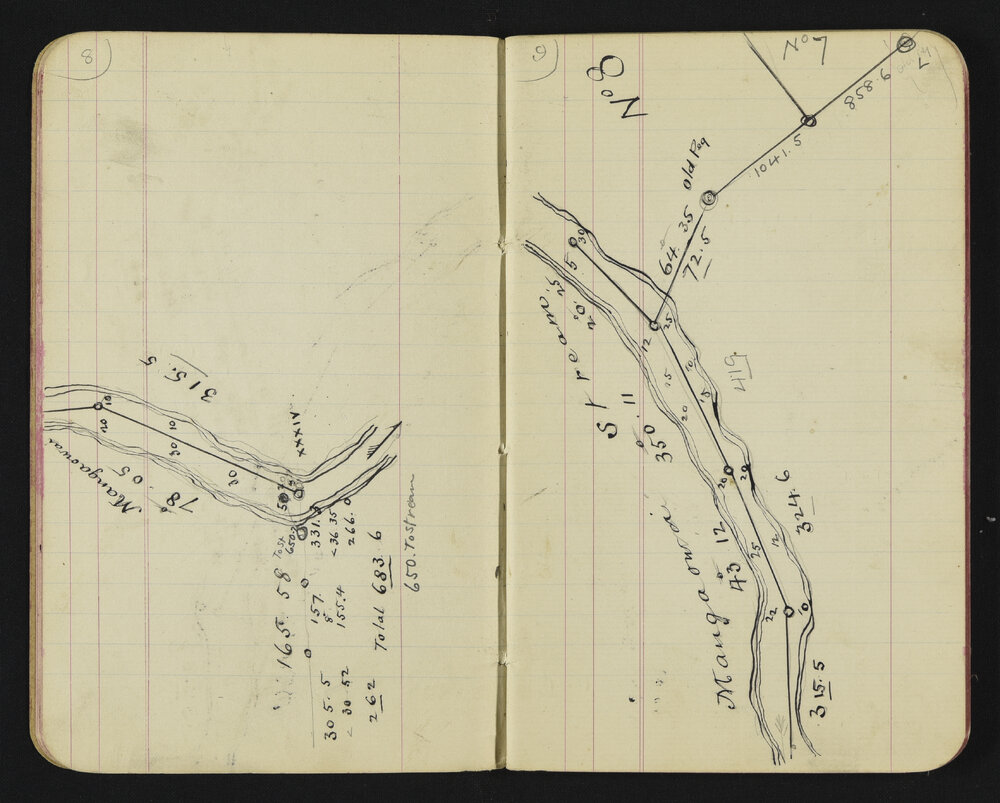 8
315.5
10
10
20
30
30
Mangaowai
78 05
XXXIV
50
650
165 58
331.
< 36 35
266.0
157.
8
155.4
305.5
< 30 52
262
Total 683.6
650. To stream
9
No 8
No 7
858.6
1041.5
Old Peg
64 35
72.5
30
5
25
20
12
25
Stream
15
20
10
15
419
350 11
20
20
Mangaowai
43 12
25
12
324.6
22
10
315.5